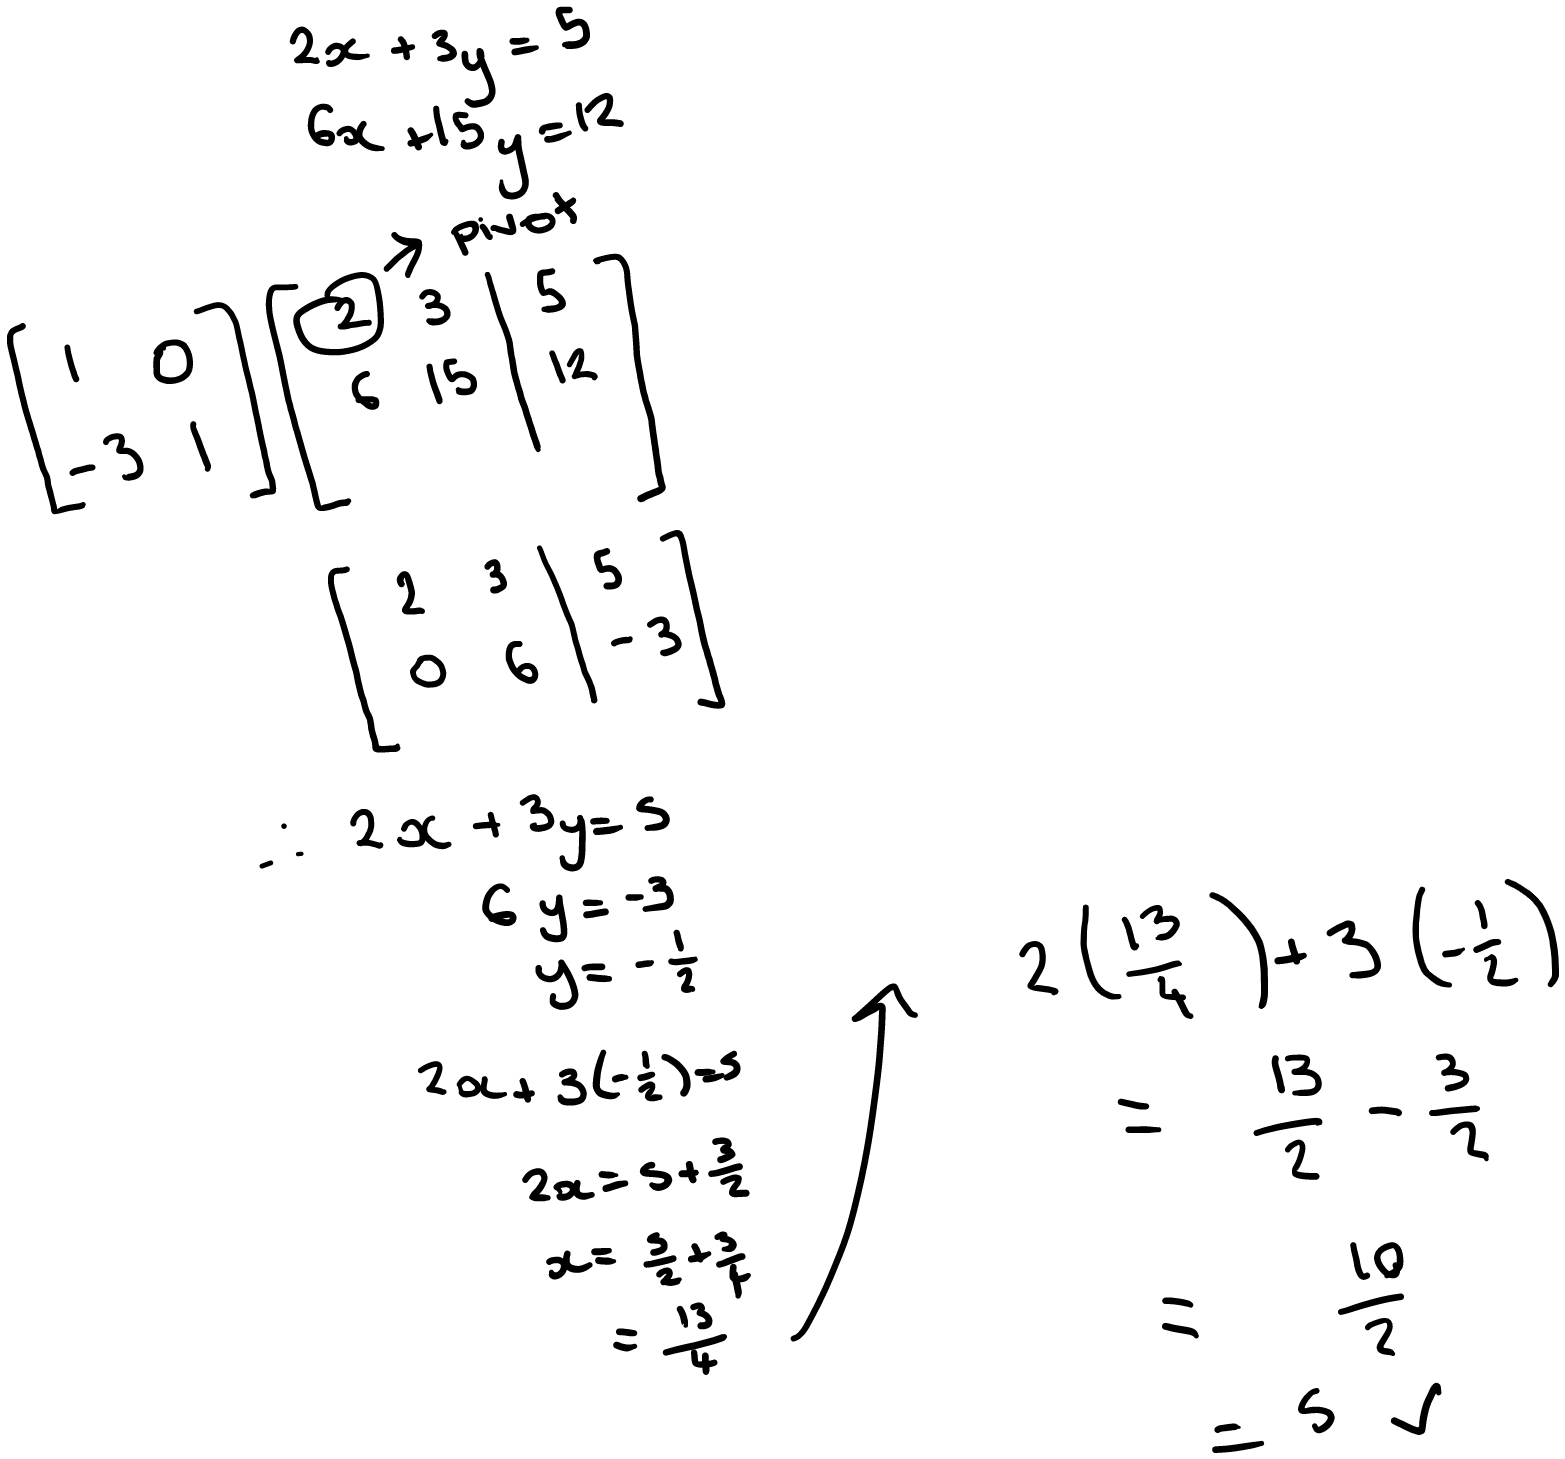 2x + 3y = 5
6x + 15y = 12
→ pivot
[ 1 0 ] [ 2 3 | 5 ]
[ -3 1 ] [ 6 15 | 12 ]
[ 2 3 | 5 ]
[ 0 6 | -3 ]
∴ 2x + 3y = 5
6y = -3
y = -1/2
2x + 3(-1/2) = 5
2x = 5 + 3/2
x = 5/2 + 3/4
= 13/4
2(13/4) + 3(-1/2)
= 13/2 - 3/2
= 10/2
= 5 ✓